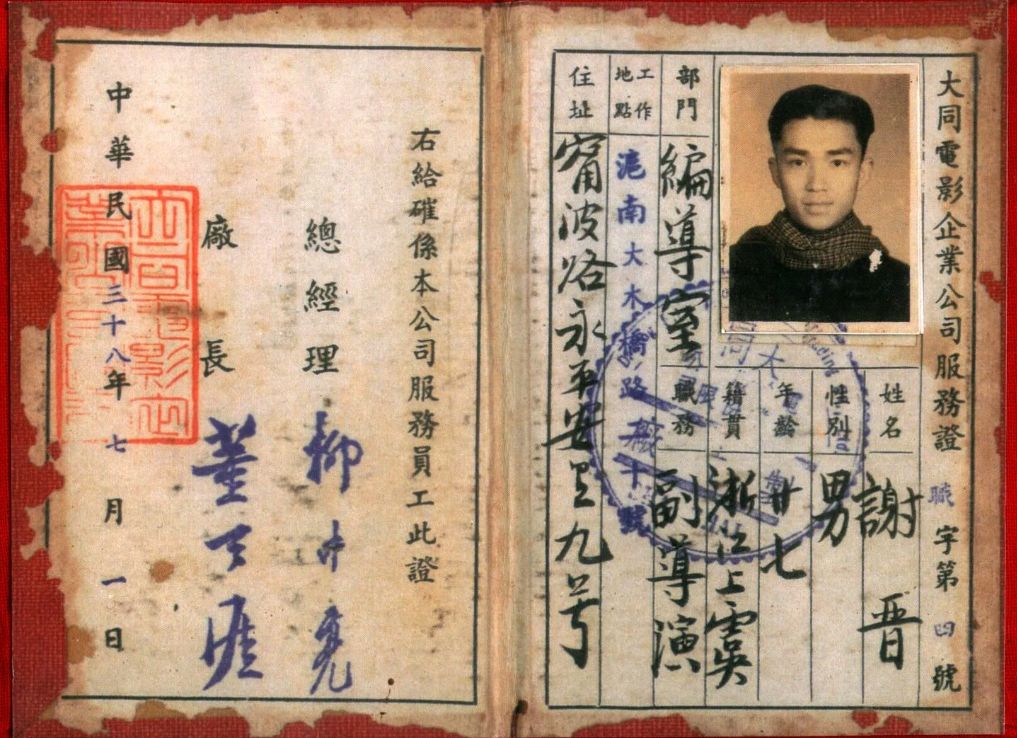 大同電影企業公司服務證
職字第四號
姓名 謝晋
性別 男
年齡 廿七
籍貫 浙江上虞
部門 編導室
職務 副導演
工作地點 滬南大木橋路
住址 甯波路永平安里九号
右給確係本公司服務員工此證
總經理 柳中亮
廠長 董天涯
中華民國三十八年七月一日